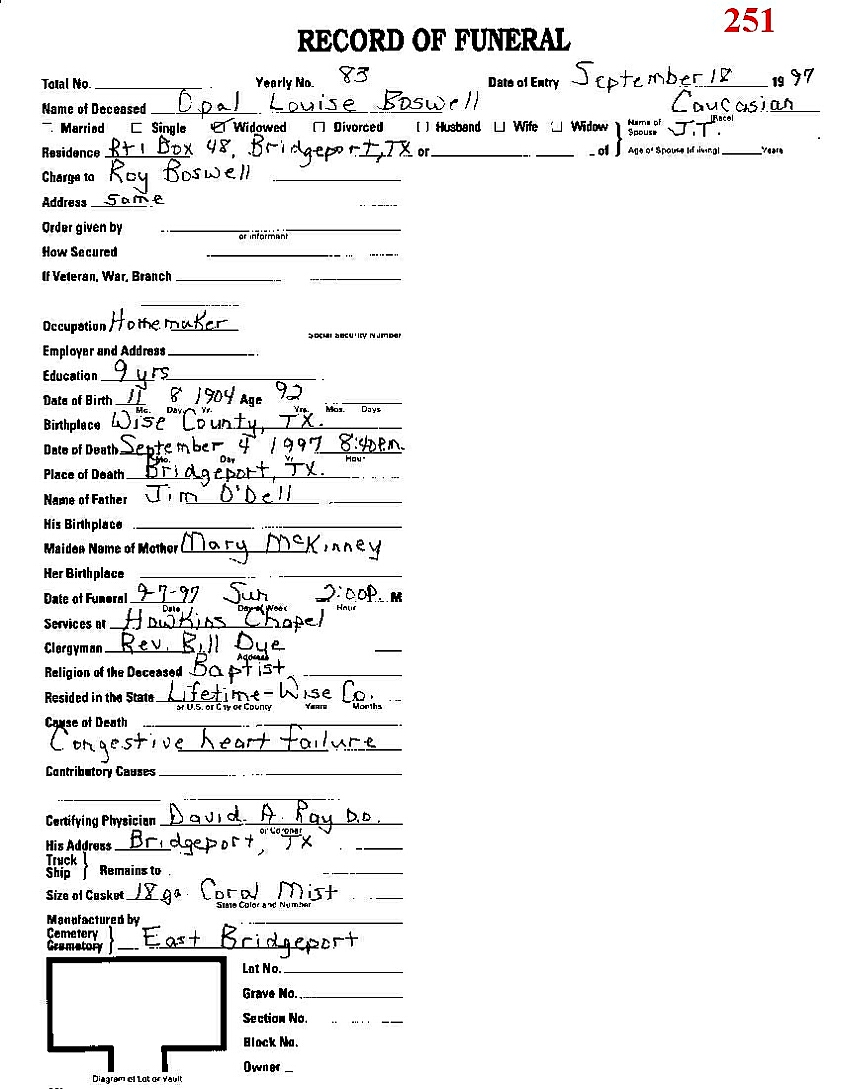 251
RECORD OF FUNERAL
Total No. Yearly No. 83 Date of Entry September 18 1997
Name of Deceased Opal Louise Boswell Caucasian
(Race)
Married Single Widowed Divorced Husband Wife Widow Name of Spouse J.T.
Residence Rt 1 Box 48, Bridgeport, TX or of Age of Spouse (if living) Years
Charge to Roy Boswell
Address Same
Order given by
or informant
How Secured
If Veteran, War, Branch
Occupation Homemaker
Social Security Number
Employer and Address
Education 9 yrs
Date of Birth 11 8 1904 Age 92
Mo. Day Yr. Yrs. Mos. Days
Birthplace Wise County, TX.
Date of Death September 4 1997 8:40 P.m.
Mo. Day Yr Hour
Place of Death Bridgeport, TX.
Name of Father Jim O'Dell
His Birthplace
Maiden Name of Mother Mary McKinney
Her Birthplace
Date of Funeral 9-7-97 Sun 2:00 P. M
Date Day of Week Hour
Services at Hawkins Chapel
Clergyman Rev. Bill Dye
Address
Religion of the Deceased Baptist
Resided in the State Lifetime-Wise Co.
or U.S. or City or County Years Months
Cause of Death
Congestive heart failure
Contributory Causes
Certifying Physician David A. Ray D.O.
or Coroner
His Address Bridgeport, TX
Truck
Ship } Remains to
Size of Casket 18 ga. Coral Mist
State Color and Number
Manufactured by
Cemetery
Crematory } East Bridgeport
Lot No.
Grave No.
Section No.
Block No.
Owner
Diagram of Lot or Vault